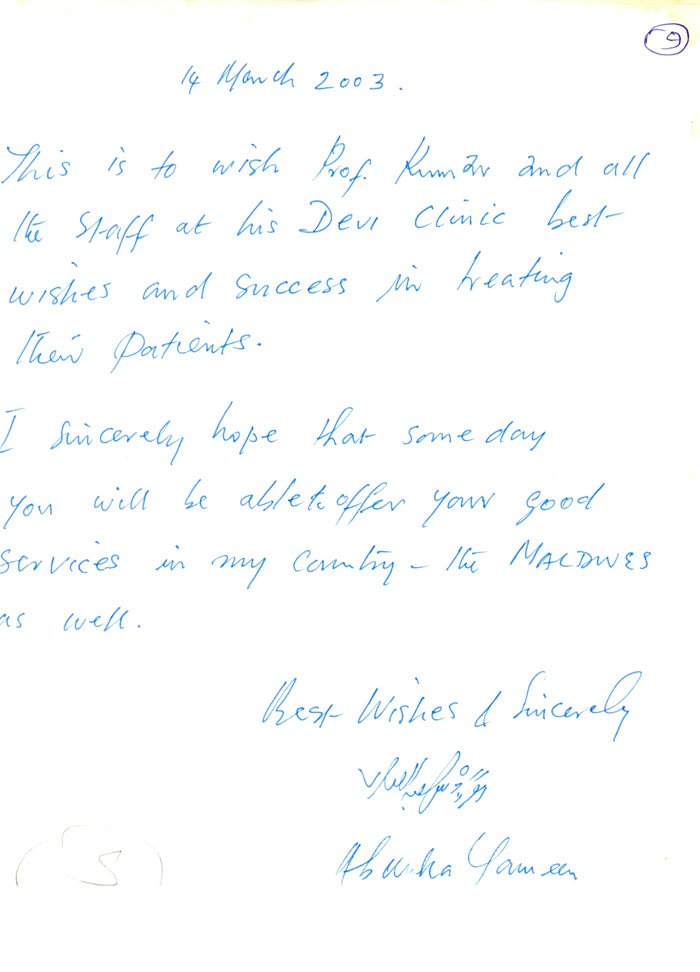 9
14 March 2003.
This is to wish Prof. Kumar and all
the Staff at his Devi Clinic best
wishes and success in treating
their patients.
I sincerely hope that some day
you will be able to offer your good
services in my country – the MALDIVES
as well.
Best Wishes & Sincerely
Yameen
5